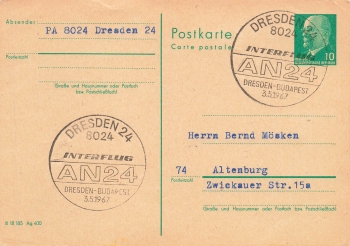 Absender:
PA 8024 Dresden 24
Postleitzahl
Straße und Hausnummer oder Postfach
bzw. Postschließfach
Postkarte
Carte postale
DRESDEN 24
8024
INTERFLUG
AN24
DRESDEN-BUDAPEST
3.5.1967
10
DRESDEN 24
8024
INTERFLUG
AN24
DRESDEN-BUDAPEST
3.5.1967
Herrn Bernd Mösken
74 Altenburg
Postleitzahl
Zwickauer Str.15a
Straße und Hausnummer oder Postfach bzw. Postschließfach
III 18 185 Ag 400